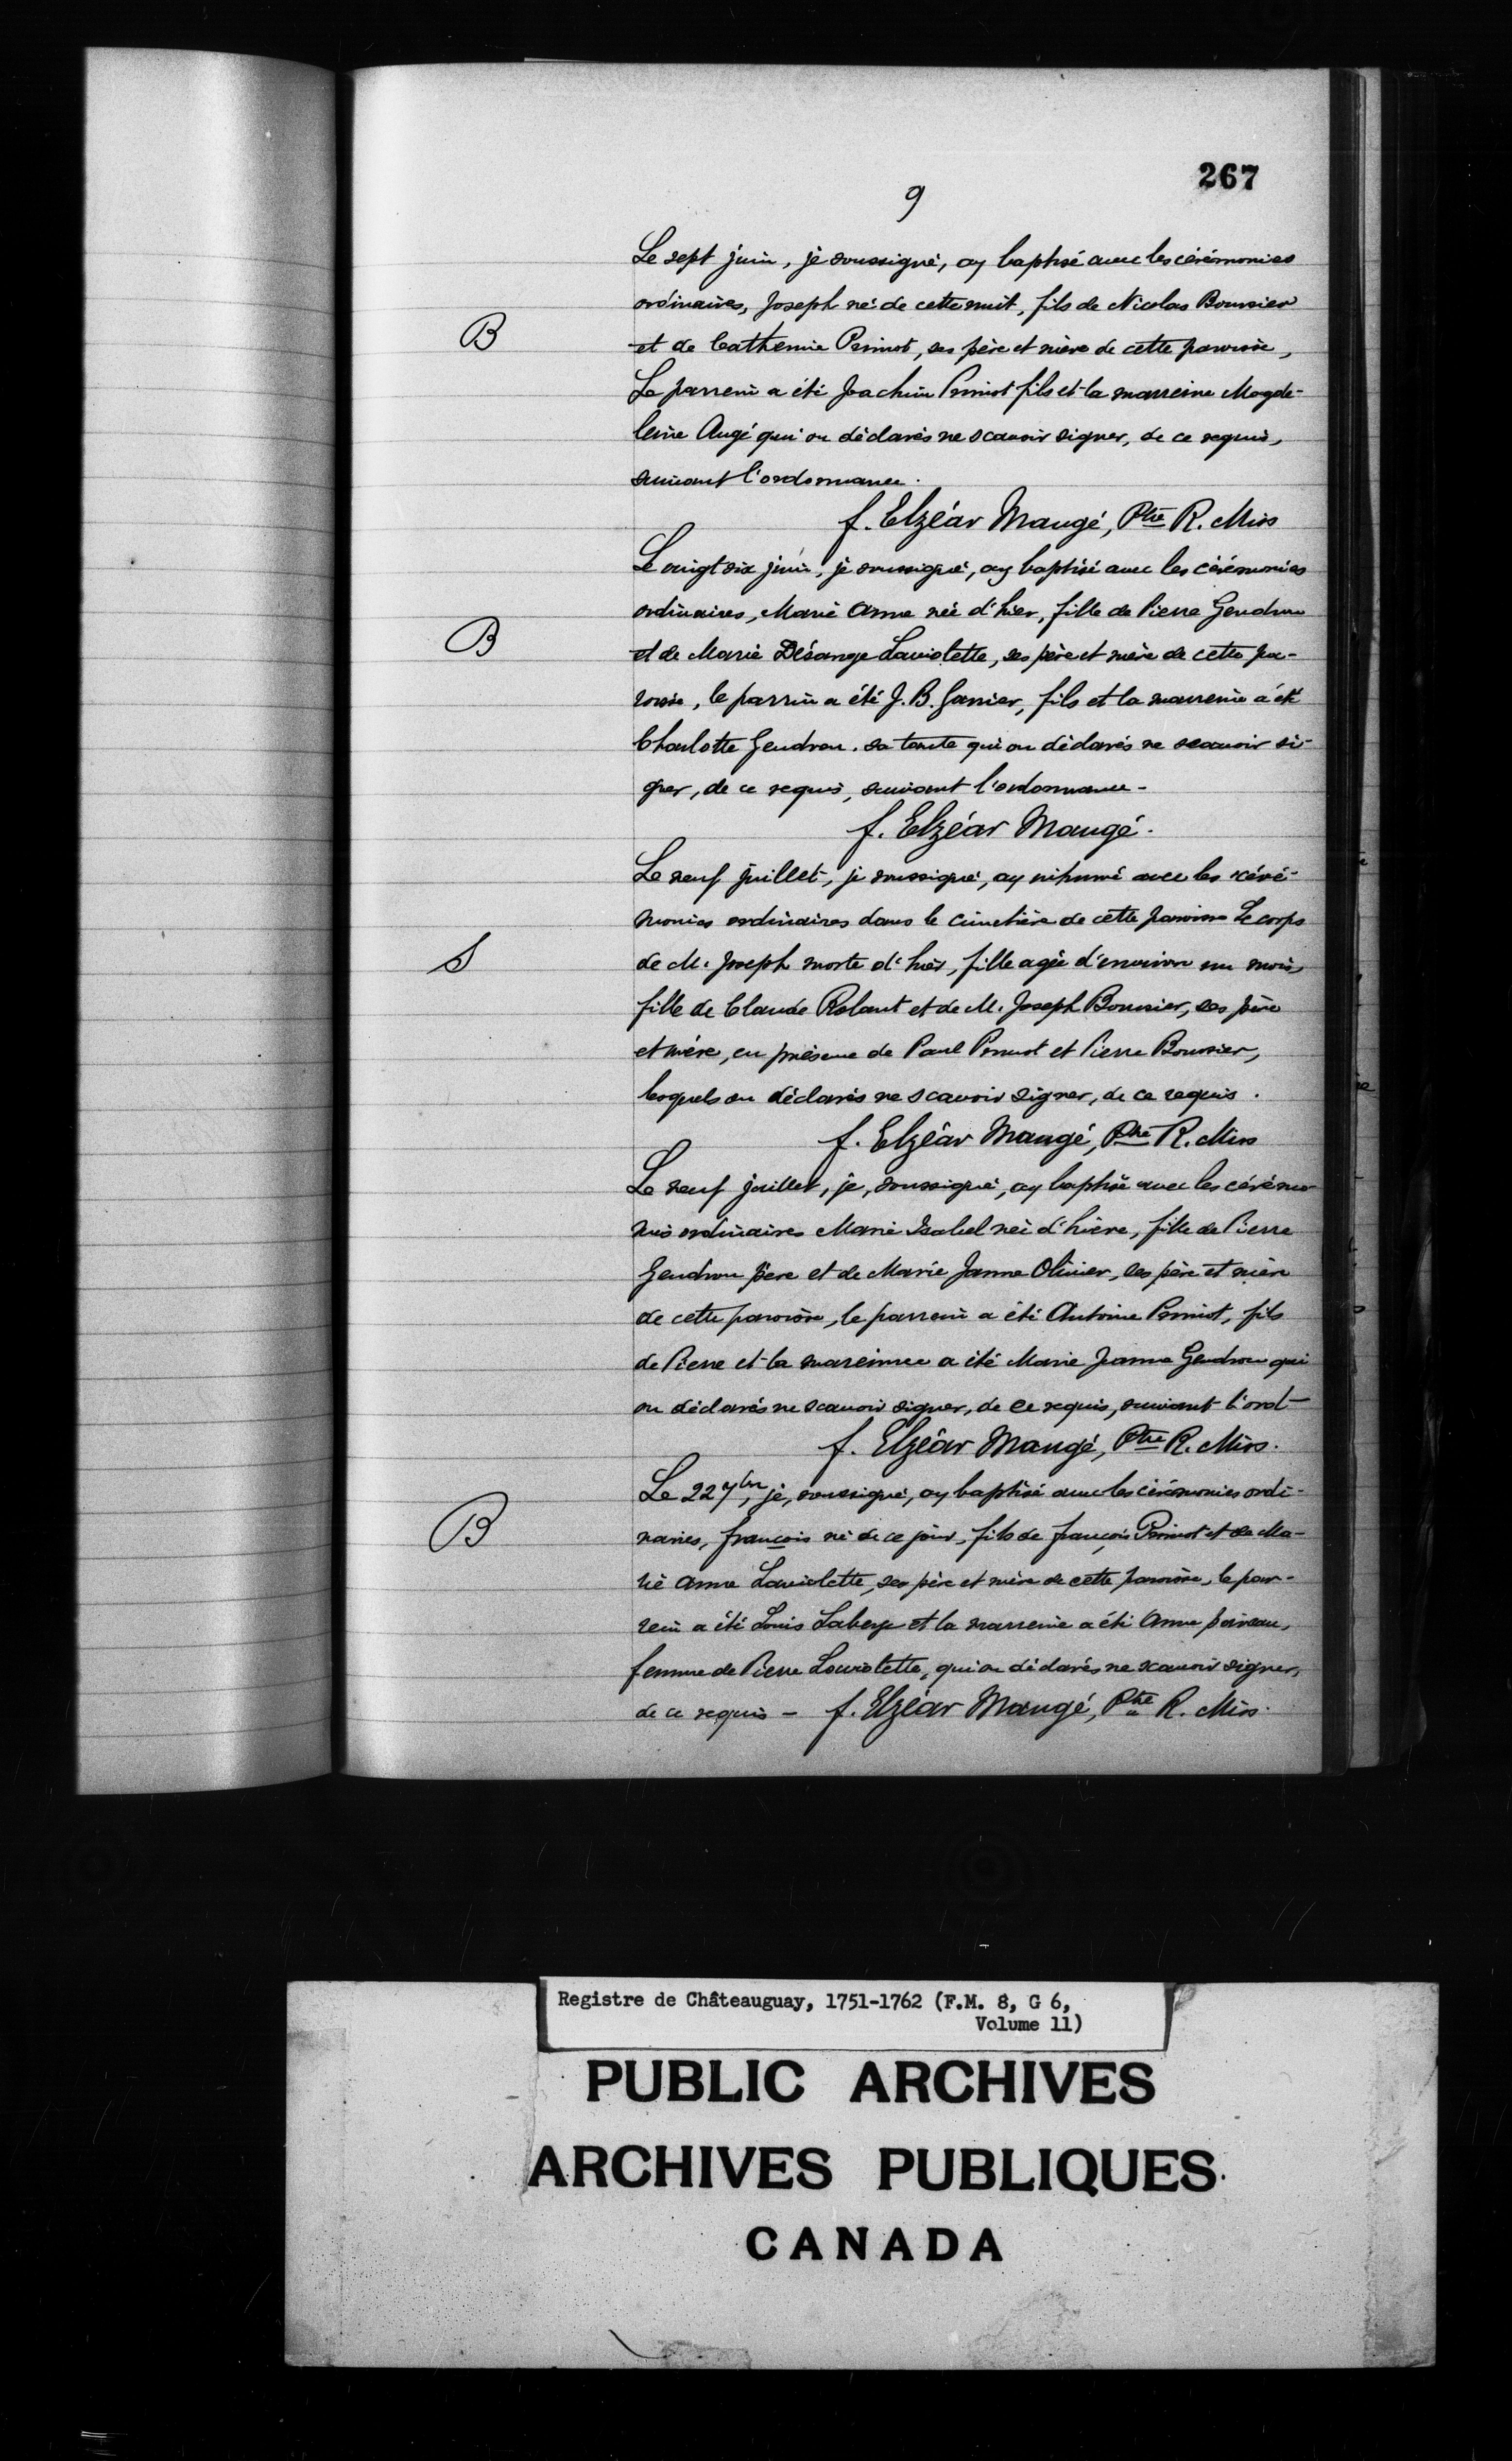 267
9
Le sept juin, je soussigné, ay baptisé avec les cérémonies
ordinaires, Joseph né de cette nuit, fils de Nicolas Boursier
B
et de Catherine Primot, ses père et mère de cette paroisse,
Le parrein a été Joachim Primot fils et la marreine Magde-
leine Augé qui on déclarés ne scavoir signer, de ce requis,
suivant l'ordonnance.
f. Elzéar Maugé, Ptre R. Miss
Le vingt six juin, je soussigné, ay baptisé avec les cérémonies
ordinaires, Marie Anne née d'hier, fille de Pierre Gendron
B
et de Marie Désange Laviolette, ses père et mère de cette pa-
roisse, le parrein a été J. B. Garrier, fils et la marreine a été
Charlotte Gendron. sa tante qui on déclarés ne scavoir si-
gner, de ce requis, suivant l'ordonnance-
f. Elzéar Maugé.
Le neuf juillet, je soussigné, ay inhumé avec les céré-
monies ordinaires dans le cimetière de cette paroisse Le corps
S
de M. Joseph morte d'hier, fille agée d'environ un mois,
fille de Claude Robant et de M. Joseph Boursier, ses père
et mère, en présence de Paul Primot et Pierre Boursier,
lesquels on déclarés ne scavoir signer, de ce requis.
f. Elzéar Maugé, Ptre R. Miss
Le neuf juillet, je, soussigné, ay baptisé avec les cérémo-
nies ordinaires Marie Isabel née d'hière, fille de Pierre
Gendron père et de Marie Janne Olivier, ses père et mère
de cette paroisse, le parrein a été Antoine Primot, fils
de Pierre et la mareinne a été Marie Jeanne Gendron qui
on déclarés ne scavoir signer, de ce requis, suivant l'ord-
f. Elzéar Maugé, Ptre R. Miss.
Le 22 7bre, je, soussigné, ay baptisé avec les cérémonies ordi-
B
naires, françois né de ce jour, fils de françois Primot et de Ma-
rie Anne Laviolette, ses père et mère de cette paroisse, le par-
rein a été Louis Laberge et la marreine a été Anne
femme de Pierre Laviolette, qui on déclarés ne scavoir signer,
de ce requis - f. Elzéar Maugé, Ptre R. Miss.
Registre de Châteauguay, 1751-1762 (F.M. 8, G 6,
Volume 11)
PUBLIC ARCHIVES
ARCHIVES PUBLIQUES
CANADA